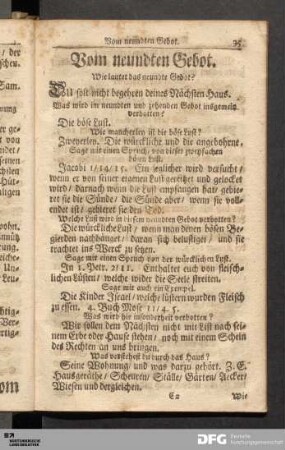 Vom neundten Gebot. 35
Vom neundten Gebot.
Wie lautet das neundte Gebot?
Du solt nicht begehren deines Nächsten Haus.
Was wird im neundten und zehenden Gebot insgemein
verbotten?
Die böse Lust.
Wie mancherley ist die böse Lust?
Zweyerley. Die würckliche und die angebohrne.
Sage mir einen Spruch, von dieser zweyfachen
bösen Lust.
Jacobi 1/14/15. Ein jeglicher wird versucht/
wenn er von seiner eigenen Lust gereitzet und gelocket
wird/ darnach wenn die Lust empfangen hat/ gebie-
ret sie die Sünde/ die Sünde aber/ wenn sie vol-
lendet ist/ gebieret sie den Tod.
Welche Lust wird in diesem neundten Gebot verbotten?
Die würckliche Lust/ wenn man denen bösen Be-
gierden nachhänget/ daran sich belustiget/ und sie
trachtet ins Werck zu setzen.
Sage mir einen Spruch von der würcklichen Lust.
In 1. Petr. 2/11. Enthaltet euch von fleisch-
lichen Lüsten/ welche wider die Seele streiten.
Sage mir auch ein Exempel.
Die Kinder Israel/ welche lüstern wurden Fleisch
zu essen. 4. Buch Mose 11/4. 5.
Was wird hie insonderheit verbotten?
Wir sollen dem Nächsten nicht mit List nach sei-
nem Erbe oder Hause stehen/ noch mit einem Schein
des Rechten an uns bringen.
Was verstehest du durch das Haus?
Seine Wohnung und was darzu gehört. Z. E.
Hausgeräthe/ Scheuren/ Ställe/ Gärten/ Aecker/
Wiesen und dergleichen.
Wie
DFG